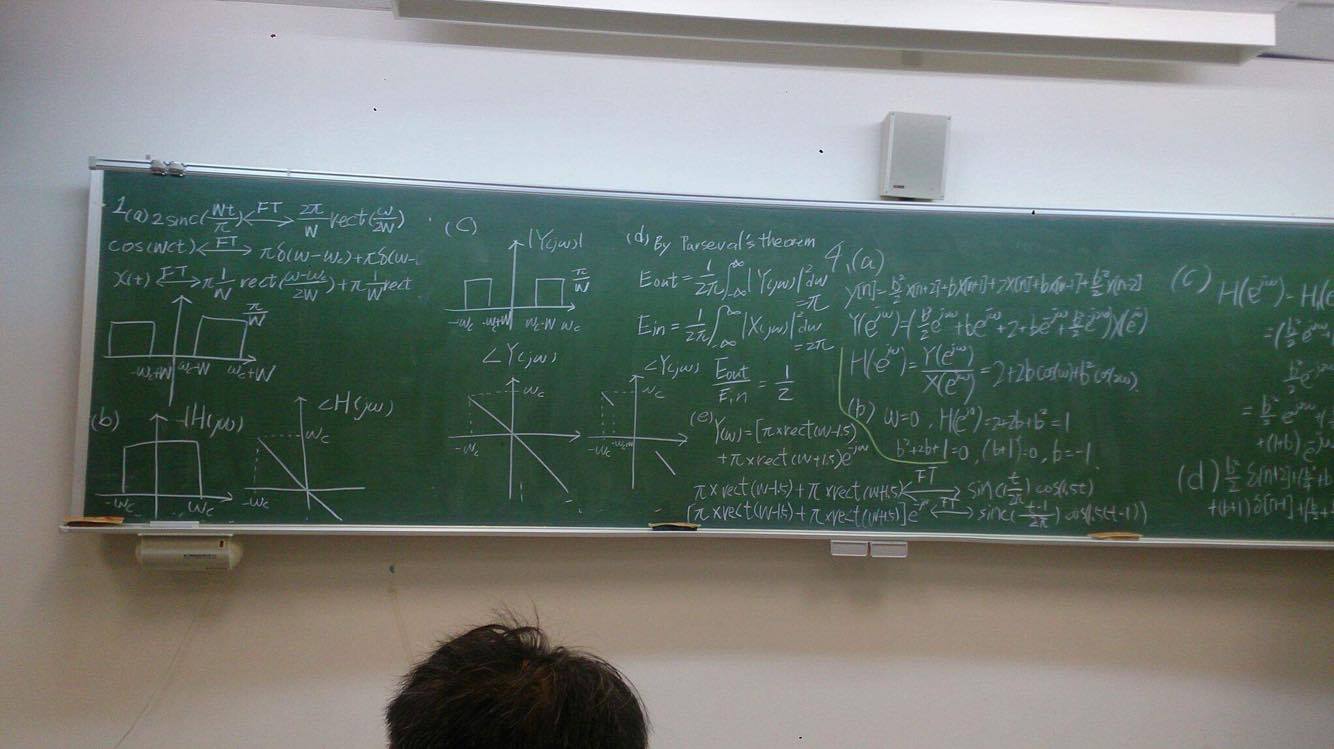 1(a) 2 sinc(Wt/π) ←FT→ 2π/W rect(ω/2W)
cos(Wct) ←FT→ πδ(ω-ωc)+πδ(ω-
X(t) ←FT→ π 1/W rect(ω-ωc/2W)+π 1/W rect
π/W
-ωc+W ωc-W ωc+W
(b) |H(jω)|
-ωc ωc
∠H(jω)
ωc
-ωc
(c)
|Y(jω)|
π/W
-ωc -ωc+W ωc-W ωc
∠Y(jω)
ωc
-ωc
∠Y(jω)
ωc
-ωc
(d) By Parseval's theorem
Eout = 1/2π ∫-∞^∞ |Y(jω)|²dω = π
Ein = 1/2π ∫-∞^∞ |X(jω)|²dω = 2π
Eout/Ein = 1/2
(e) Y(ω)=[π×rect(ω-1.5)
+π×rect(ω+1.5)e^-jω
π×rect(ω-1.5)+π×rect(ω+1.5) ←FT→ sinc(t/2π) cos(1.5t)
[π×rect(ω-1.5)+π×rect(ω+1.5)]e^-jω ←FT→ sinc(t-1/2π) cos(1.5(t-1))
4.(a)
y[n]= b²/2 x[n+2]+bx[n+1]+2x[n]+bx[n-1]+b²/2 x[n-2]
Y(e^jω)=(b²/2 e^j2ω+be^jω+2+be^-jω+b²/2 e^-j2ω)X(e^jω)
H(e^jω)=Y(e^jω)/X(e^jω)=2+2b cos(ω)+b² cos(2ω)
(b) ω=0, H(e^j0)=2+2b+b²=1
b²+2b+1=0, (b+1)²=0, b=-1.
(c) H(e^jω)= H1(e
=(b²/2 e^j2ω
= b²/2 e^j2ω
+(1+b)e^-jω
(d) b²/2 δ[n+2]+(
+(b+1)δ[n-1]+(